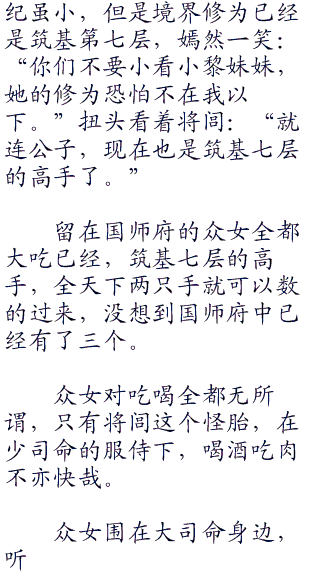 纪虽小，但是境界修为已经
是筑基第七层，嫣然一笑：
“你们不要小看小黎妹妹，
她的修为恐怕不在我以
下。”扭头看着将闾：“就
连公子，现在也是筑基七层
的高手了。”
留在国师府的众女全都
大吃已经，筑基七层的高
手，全天下两只手就可以数
的过来，没想到国师府中已
经有了三个。
众女对吃喝全都无所
谓，只有将闾这个怪胎，在
少司命的服侍下，喝酒吃肉
不亦快哉。
众女围在大司命身边，
听